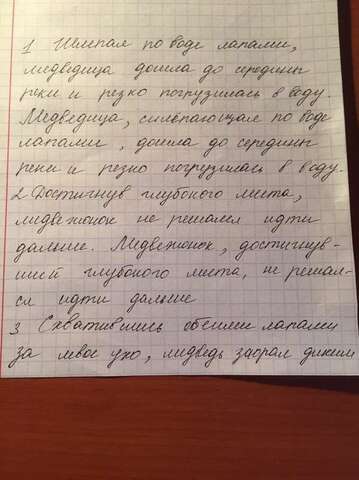 1 Шлепая по воде лапами,
медведица дошла до середины
реки и резко погрузилась в воду.
Медведица, шлёпающая по воде
лапами, дошла до середины
реки и резко погрузилась в воду.
2 Достигнув глубокого места,
медвежонок не решался идти
дальше. Медвежонок, достигнув-
ший глубокого места, не решал-
ся идти дальше
3 Схватившись обеими лапами
за левое ухо, медведь заорал диким